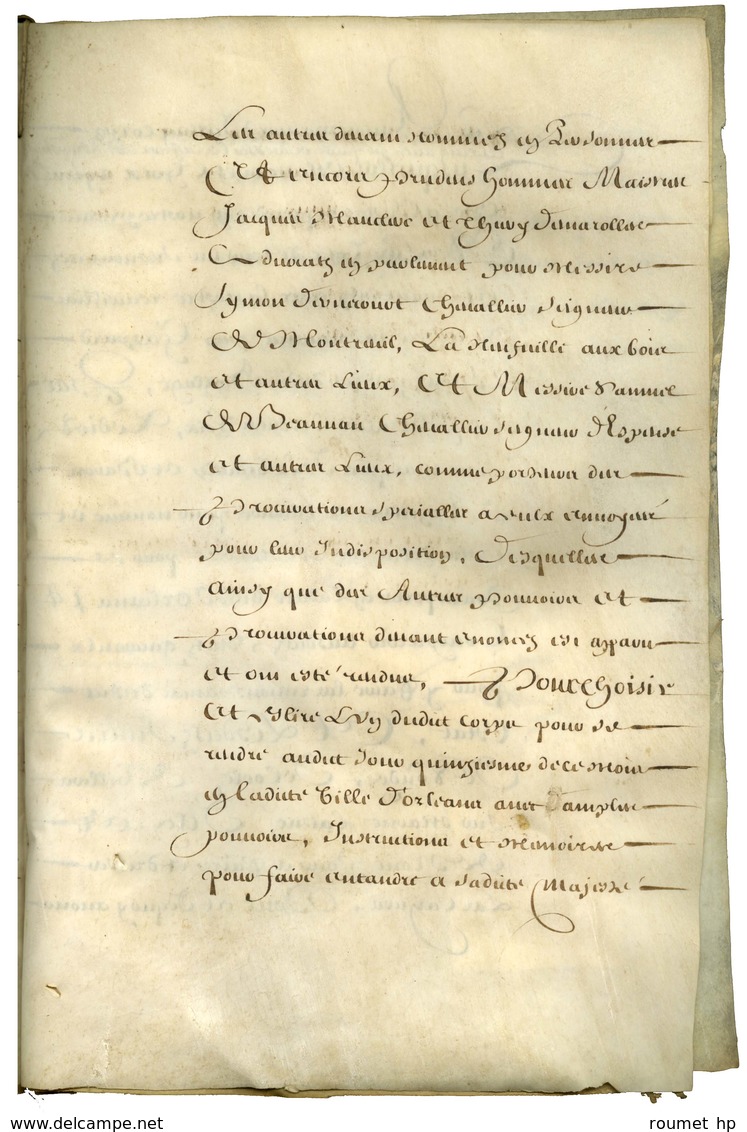 Les autres devant nommez en Personnes
Et encores Prudens hommes Maistres
Jacques Mauclerc et Thierry Desmarolles
Advocatz en parlement pour Messire
Symon Chevallier seigneur
De Montreuil, La Neufville aux bois
et autres Lieux, Et Messire Samuel
De Beauvau Chevallier seigneur d'Espense
et autres Lieux, comme porteurs des
Procurations specialles a eulx envoyees
pour leur Indisposition, Desquelles
ainsy que des Autres pouvoirs et
Procurations devant enoncez est apparu
et ont esté rendus, Pour choisir
et Eslire L'un dudict corps pour se
rendre audict Jour quinziesme de ce mois
en ladicte Ville d'orleans avec amples
pouvoirs, Instructions et Memoires
pour faire entendre a sadicte Majesté
www.delcampe.net
roumet hp